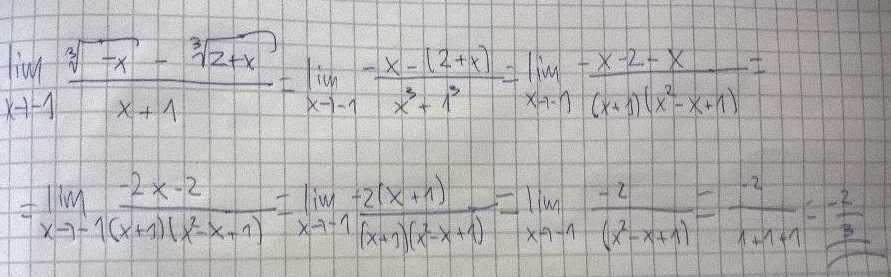 lim x→-1 (∛(-x) - ∛(2+x))/(x+1) = lim x→-1 (-x-(2+x))/(x³+1³) = lim x→-1 (-x-2-x)/((x+1)(x²-x+1)) =
= lim x→-1 (-2x-2)/((x+1)(x²-x+1)) = lim x→-1 (-2(x+1))/((x+1)(x²-x+1)) = lim x→-1 (-2)/((x²-x+1)) = (-2)/(1+1+1) = (-2)/3